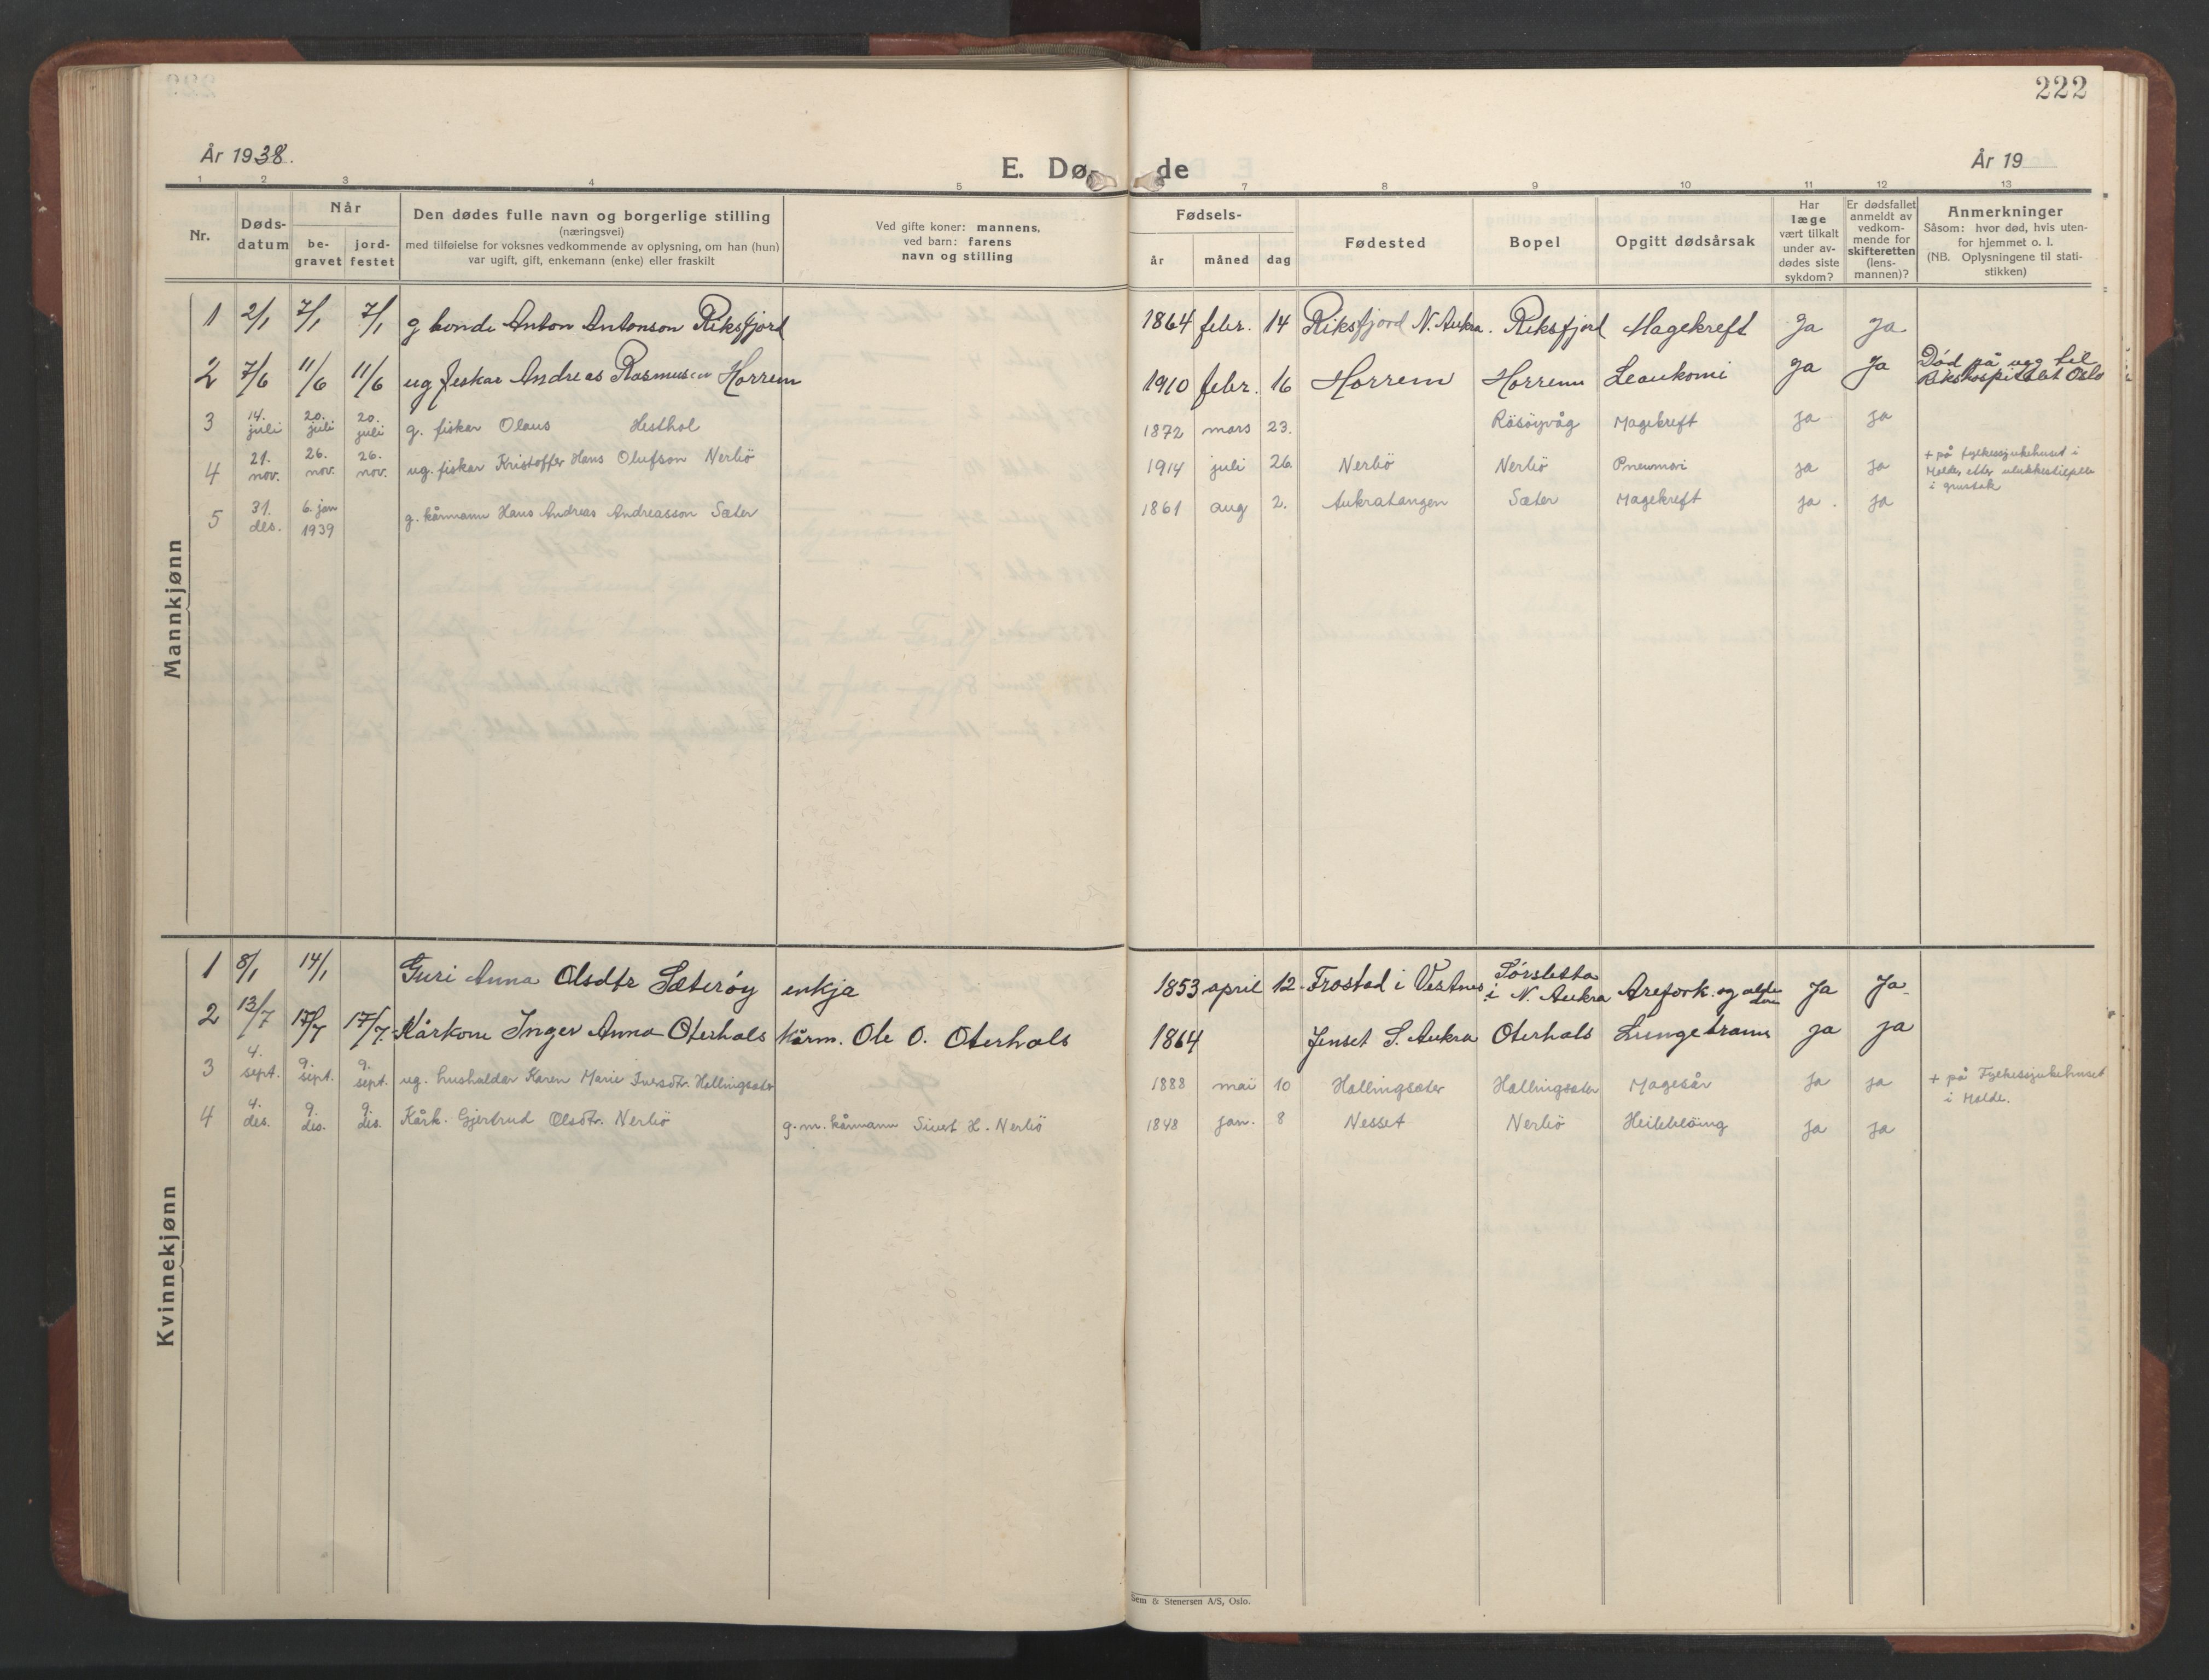 222
År 1938.
E. Dø- de
År 19
1 2 3 4 5 7 8 9 10 11 12 13
Nr.
Døds-
datum
Når
be-
gravet
jord-
festet
Den dødes fulle navn og borgerlige stilling
(næringsvei)
med tilføielse for voksnes vedkommende av oplysning, om han (hun)
var ugift, gift, enkemann (enke) eller fraskilt
Ved gifte koner: mannens,
ved barn: farens
navn og stilling
Fødsels-
år måned dag
Fødested
Bopel
Opgitt dødsårsak
Har
læge
vært tilkalt
under av-
dødes siste
sykdom?
Er dødsfallet
anmeldt av
vedkom-
mende for
skifteretten
(lens-
mannen)?
Anmerkninger
Såsom: hvor død, hvis uten-
for hjemmet o. l.
(NB. Oplysningene til stati-
stikken)
Mannkjønn
1 2/1 7/1 7/1 g bonde Anton Antonson Riksfjord 1864 febr. 14 Riksfjord N. Aukra. Riksfjord Magekreft Ja Ja
2 7/6 11/6 11/6 ug fiskar Andreas Rasmussen Horrem 1910 febr. 16 Horrem Horrem Leaukomi Ja Ja Død på veg til
Rikshospitalet Oslo
3 14. juli 20. juli 20. juli g. fiskar Olaus Hesthol 1872 mars 23. Räsöyvåg Magekreft ja ja
4 21. nov. 26. nov. 26. nov. ug. fiskar Kristoffer Hans Olufson Nerbö 1914 juli 26. Nerbö Nerbö Pneumoni ja ja + på fylkessjukehuset i
Molde, etter ulukkestilfelle
i grustak
5 31. des. 6. jan 1939 g. kårmann Hans Andreas Andreasson Sæter 1861 aug 2. Aukratangen Sæter Magekreft ja. ja
Kvinnekjønn
1 8/1 14/1 Guri Anna Olsdtr Sæterøy enkja 1853 april 12 Frostad i Vestnes Sørsletta
i N. Aukra Arefork. og alder
dom Ja Ja
2 13/7 17/7 17/7 Kårkone Inger Anna Oterhals kårm. Ole O. Oterhals 1864 Jenset S. Aukra Oterhals Lungebetram ja ja
3 4. sept. 9. sept. 9. sept. ug. husholdar Karen Marie Iversdtr. Hallingsæter 1888 mai 10 Hallingsæter Hallingsæter Magesår ja ja + på Fylkessjukehuset
i Molde.
4 4. des. 9. des. 9. des. Kårk. Gjertrud Olsdtr. Nerbö g. m. kårmann Sivert H. Nerbö 1848 jan. 8 Nesset Nerbö Heilebløing ja ja
Sem & Stenersen A/S, Oslo.